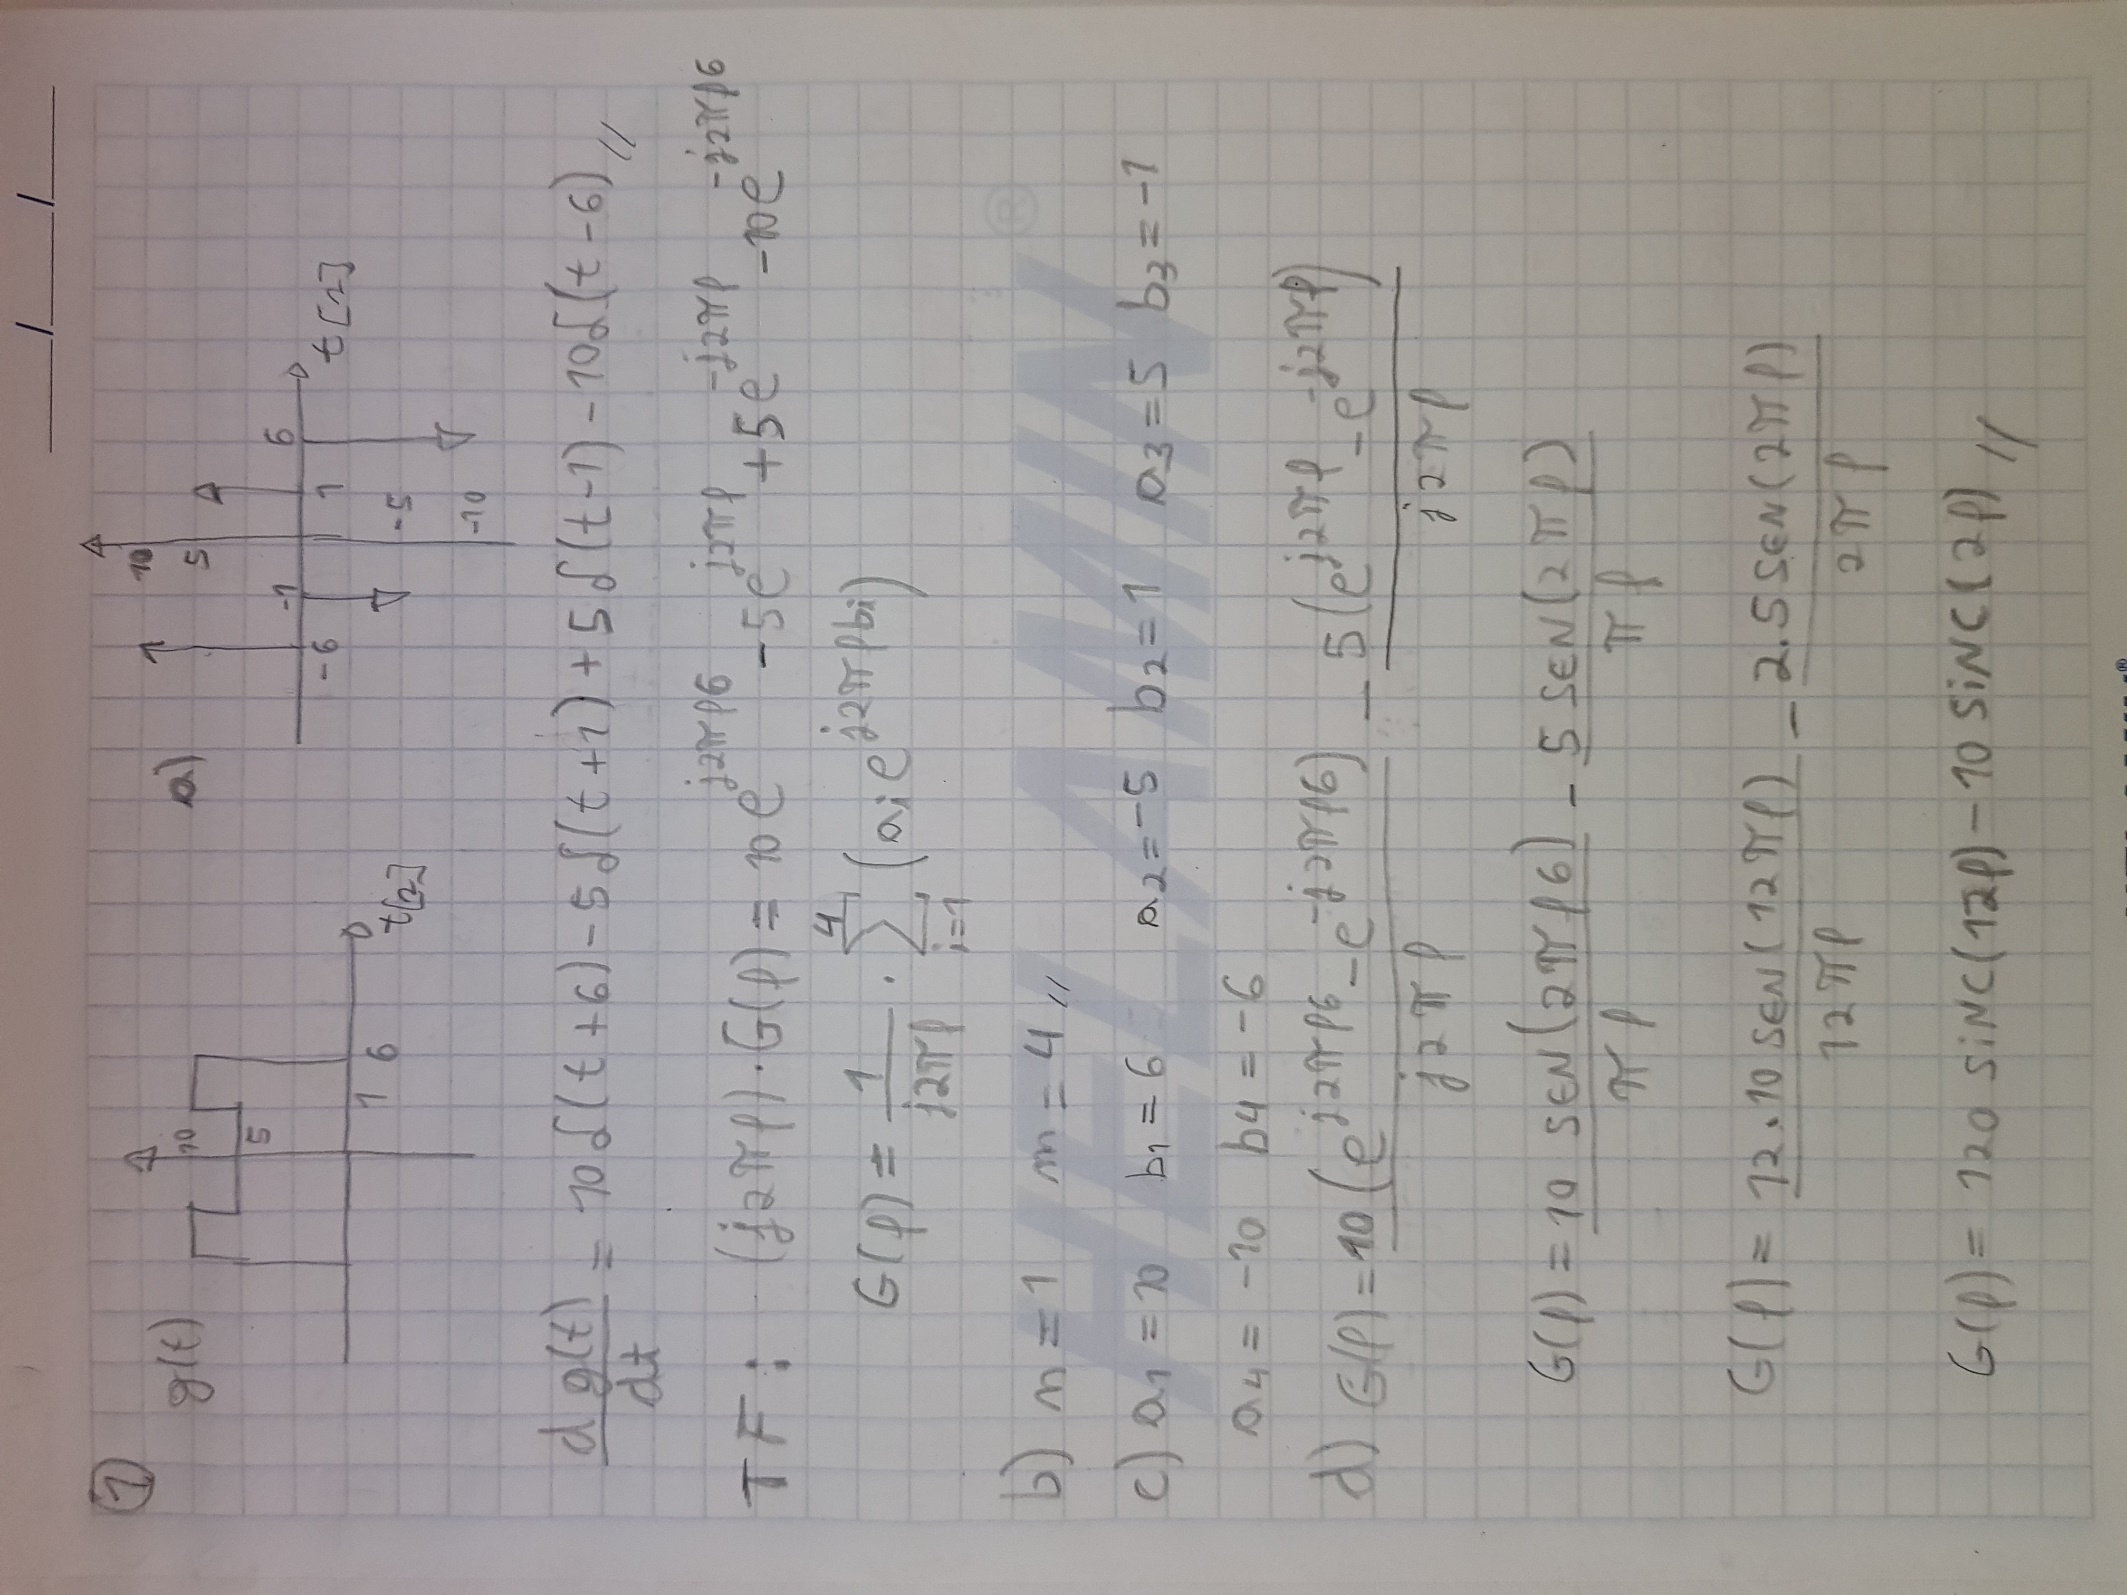 ___/___/___
① g(t) 10 5 1 6 t[s]
a) 10 5 -6 -1 1 6 -5 -10 t[s]
dg(t)/dt = 10δ(t+6)-5δ(t+1)+5δ(t-1)-10δ(t-6)//
TF: (j2πf).G(f) = 10e^{j2πf6} -5e^{j2πf} +5e^{-j2πf} -10e^{-j2πf6}
G(f) = 1/j2πf . ∑_{i=1}^{4} (ai e^{j2πfbi})
b) n = 1 m = 4 //
c) a1 = 10 b1 = 6 a2 = -5 b2 = 1 a3 = 5 b3 = -1
a4 = -10 b4 = -6
d) G(f) = 10(e^{j2πf6} - e^{-j2πf6})/j2πf - 5(e^{j2πf} - e^{-j2πf})/j2πf
G(f) = 10 SEN(2πf6)/πf - 5 SEN(2πf)/πf
G(f) = 12.10 SEN(12πf)/12πf - 2.5 SEN(2πf)/2πf
G(f) = 120 SiNC(12f) - 10 SiNC(2f) //
HELAMAN
®